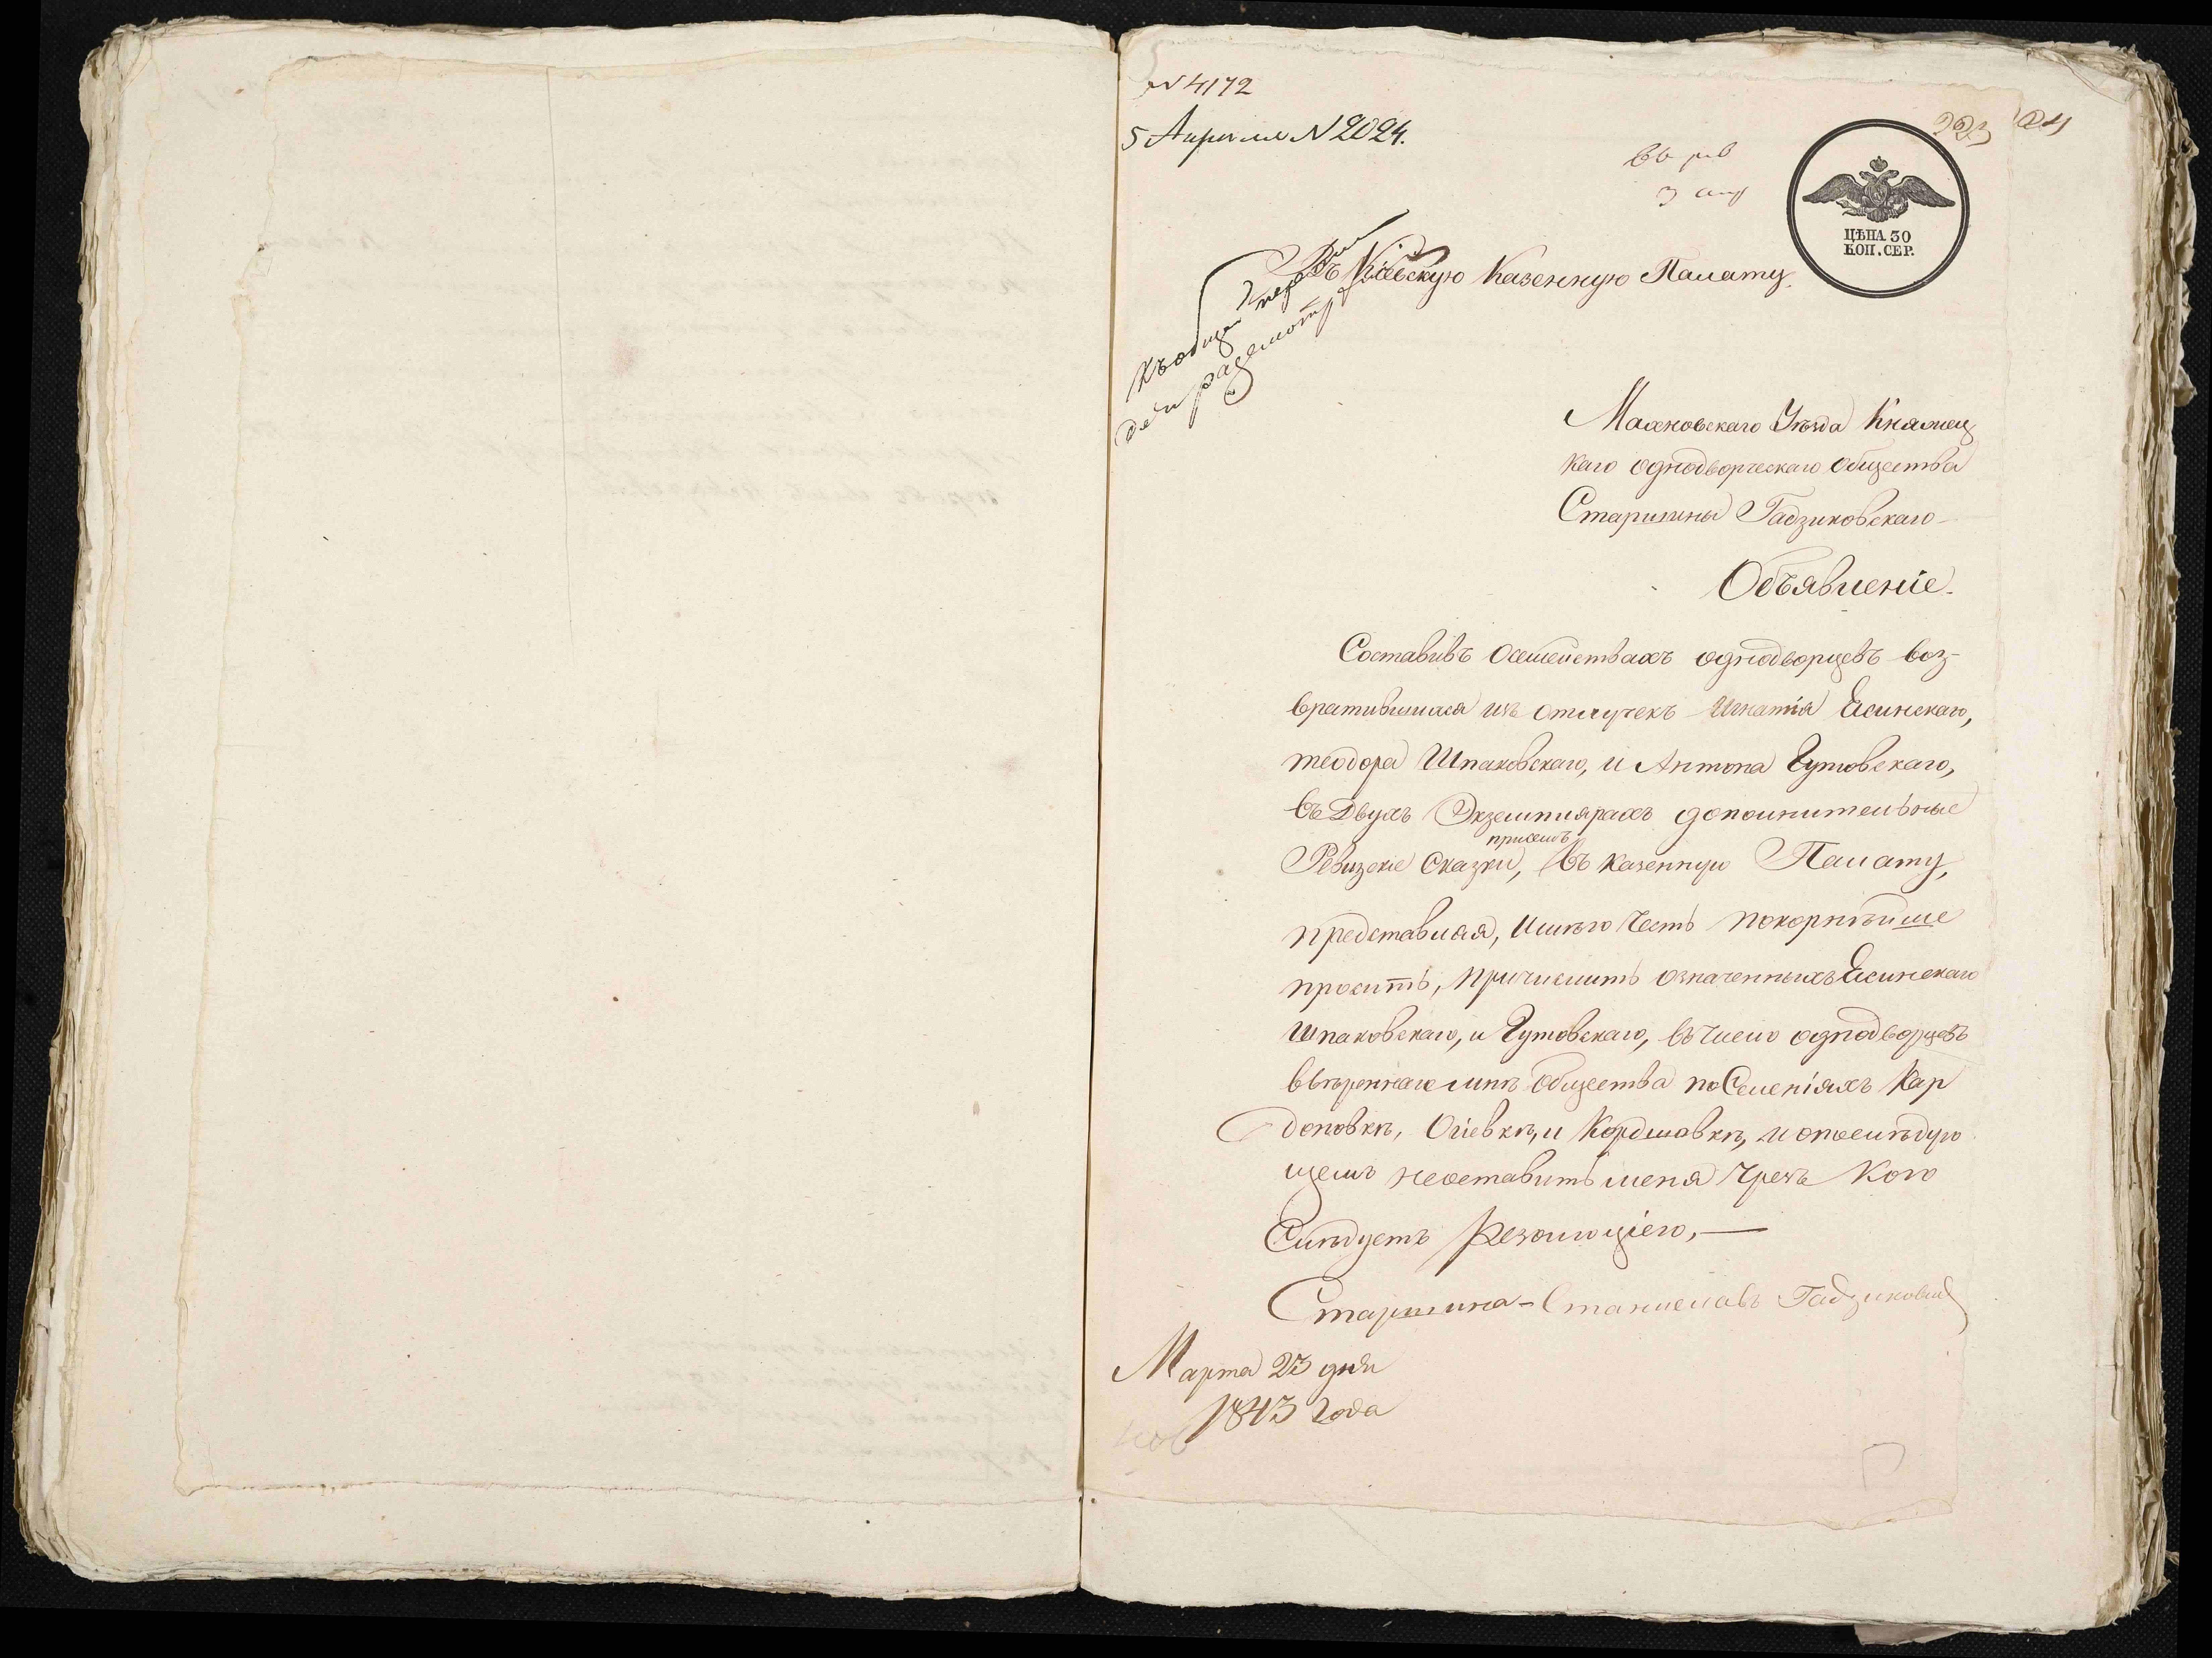 № 4172
5 Апреля № 2024.
223 224
въ рев
3 апр
ЦѢНА 30
КОП. СЕР.
Въ Кіевскую Казенную Палату.
къ общей
рассмотр
Махновскаго Уѣзда Княжец
каго однодворческаго общества
Старшины Гадзиковскаго
Объявленіе.
Составивъ осемействахъ однодворцевъ воз-
вратившихся изъ отлучекъ Игнатія Ясинскаго,
теодора Шпаковскаго, и Антона Гутовскаго,
въ Двухъ Экземплярахъ дополнительные
присемъ
Ревизскіе Сказки, въ казенную Палату,
представляя, Имѣю Честь покорнѣйше
просить, причислить означенныхъ Ясинскаго
Шпаковскаго, и Гутовскаго, въ число однодворцевъ
ввѣреннаго мнѣ общества по Селеніяхъ Кар
доповкѣ, Огіевкѣ, и Кордышавкѣ, и опослѣдую
щемъ неоставить меня чрезъ Кого
Слѣдуетъ Резолюціею, —
Старшина - Станиславъ Гадзиковс
Марта 23 дня
1843 года